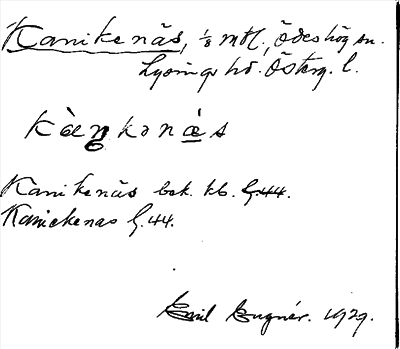 Kanikenäs, 1/8 mtl., Ödeshög sn.
Lysings hd. Österg. l.
Kàŋkənás
Kanikenäs bok. kb. G.44.
Kanickenas G.44.
Emil Eugnér. 1929.